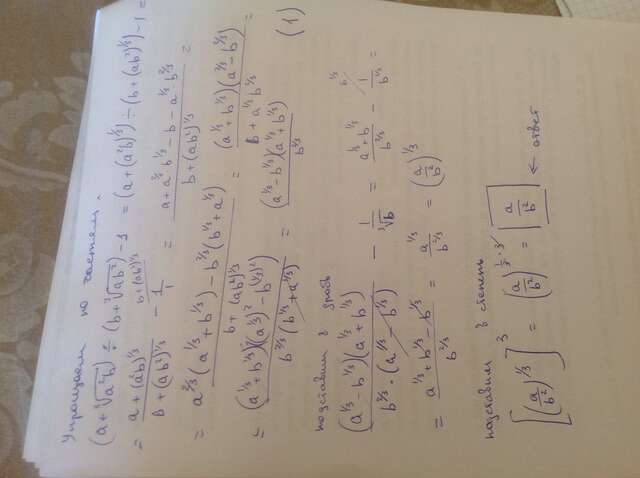 Упрощаем по частям.
(a+∛(a²b)) ÷ (b+∛(ab²)) -1 = (a+(a²b)^(1/3)) ÷ (b+(ab²)^(1/3)) -1 =
= (a+(ab)^(1/3))/(b+(ab²)^(1/3)) - 1/1 = (a+a^(2/3)b^(1/3)-b-a^(1/3)·b^(2/3))/(b+(ab²)^(1/3)) =
= (a^(2/3)(a^(1/3)+b^(1/3))-b^(2/3)(b^(1/3)+a^(1/3)))/(b+(ab²)^(1/3)) = ((a^(1/3)+b^(1/3))(a^(2/3)-b^(2/3)))/(b+a^(1/3)b^(2/3)) =
= ((a^(1/3)+b^(1/3))((a^(1/3))²-b^(1/3)²))/(b^(2/3)(b^(1/3)+a^(1/3))) = ((a^(1/3)-b^(1/3))(a^(1/3)+b^(1/3)))/b^(2/3) (1)
подставим в дробь
((a^(1/3)-b^(1/3))(a^(1/3)+b^(1/3)))/(b^(2/3)·(a^(1/3)-b^(1/3))) - 1/∛b = (a^(1/3)+b^(1/3))/b^(2/3) - 1/b^(1/3) =
= (a^(1/3)+b^(1/3)-b^(1/3))/b^(2/3) = a^(1/3)/b^(2/3) = (a/b²)^(1/3)
подставим в степень
[(a/b²)^(1/3)]³ = (a/b²)^(1/3·3) = a/b² ← ответ